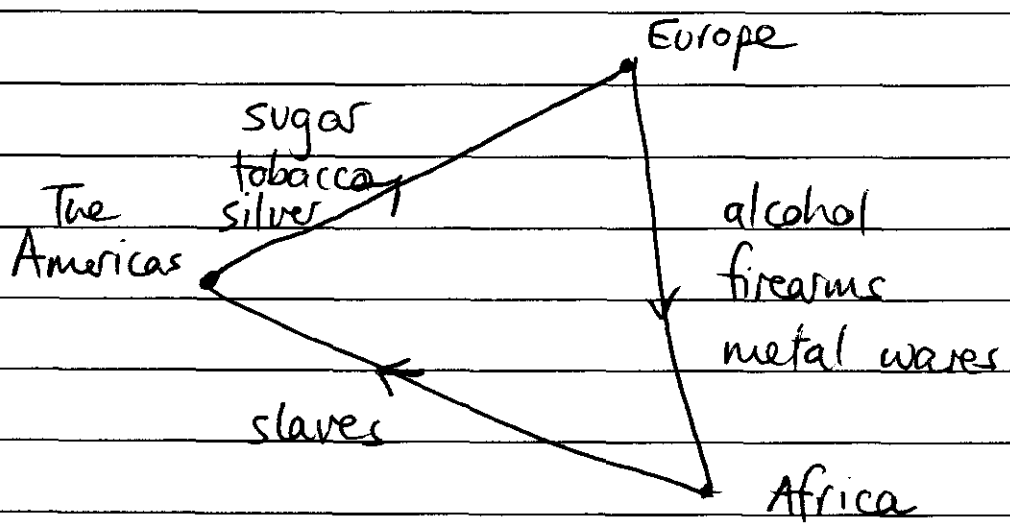 Europe
sugar
tobacco
silver
The
Americas
alcohol
firearms
metal wares
slaves
Africa